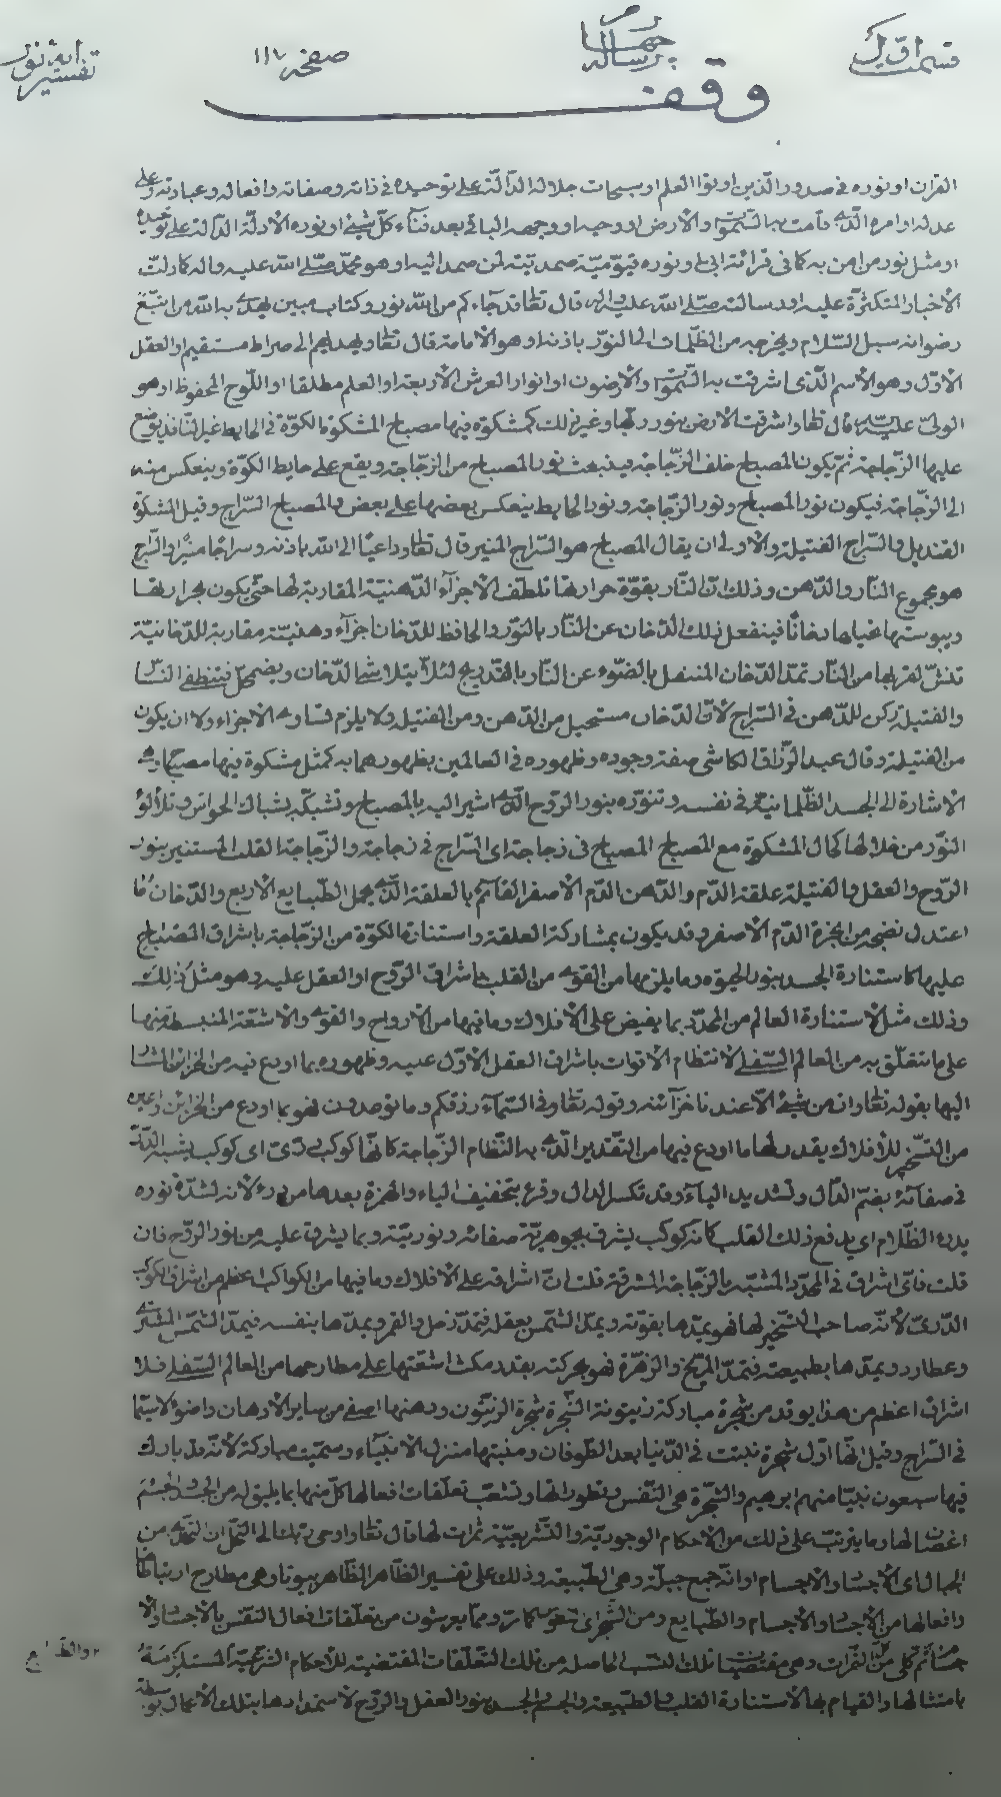 قسمت اول
رساله
صفحه ١١٧
تفسير اية نور
وقف
القران او نوره فى صدور الذين اوتوا العلم او سبحات جلاله الدآلّة على توحيده فى ذاته وصفاته وافعاله وعبادته وعلى
عدله او امره الّذى قامت به السّموات والارض او وجهه او وجهه الباقى بعد فنآء كلّ شىء او نوره الادلّة الدآلّة على توحيده
او مثل نور من امن به كما فى قرائة ابىّ او نوره قيّوميّة صمديّته لمن صمد اليه او هو محمّد صلّى الله عليه واله كما دلّت
الأخبار المتكثرة عليه او رسالته صلّى الله عليه واله قال تعا قد جاءكم من الله نور وكتاب مبين يهدى به الله من اتبع
رضوانه سبل السّلام ويخرجهم من الظّلمات الى النّور باذنه او هو الامامة قال تعا ويهديهم الى صراط مستقيم او العقل
الاوّل وهو الأسم الّذى اشرقت به السّموات والأرضون او انوار العرش الأربعة او العلم مطلقا او اللّوح المحفوظ او هو
الولىّ عليه قال تعا واشرقت الارض بنور ربّها وغير ذلك كمشكوة فيها مصباح المشكوة الكوّة فى الحايط غير النّافذ يوضع
عليها الزّجاجة ثمّ يكون المصباح خلف الزّجاجة فينبعث نور المصباح من الزّجاجة ويقع على حايط الكوّة وينعكس منه
الى الزّجاجة فيكون نور المصباح ونور الزّجاجة ونور الحايط ينعكس بعضها على بعض والمصباح السّراج وقيل المشكوة
القنديل والسّراج الفتيلة والاولى ان يقال المصباح هو السّراج المنير قال تعا وداعيًا الى الله باذنه وسراجا منيرًا والسّراج
هو مجموع النّار والدّهن وذلك انّ النّار بقوّة حرارتها تلطّف الأجزآء الدّهنيّة المقاربة لها حتّى يكون بحرارتها
ويبوستها دخانًا فينفعل ذلك الدّخان عن النّار بالنّور والحافظ للدّخان اجزآء دهنيّة مقاربة للدّخانيّة
لقربها من النّار تمدّ الدّخان المنفعل بالضّوء عن النّار بالتّدريج لئلّا يتلاشى الدّخان ويضمحلّ فتنطفى النّار
والفتيلة ركن للدّهن فى السّراج لأنّ الدّخان مستحيل من الدّهن ومن الفتيلة ولا يلزم تساوى الأجزاء ولا ان يكون
من الفتيلة وقال عبد الرّزاق الكاشى صفة وجوده وظهوره فى العالمين بظهورهما به كمثل مشكوة فيها مصباح وهى
الاشارة الى الجسد الظّلمانيّته فى نفسه وتنوّره بنور الرّوح الّذى اشير اليه بالمصباح وتشبّكه بشباك الحواسّ وتلألؤ
النّور من خلالها كحال المشكوة مع المصباح المصباح فى زجاجة اى السّراج فى زجاجة والزّجاجة القلب المستنير بنور
الرّوح والعقل والفتيلة علقة الدّم والدّهن الدّم الأصفر القآئم بالعلقة الّذى يحمل الطّبايع الأربع والدّخان ما
اعتدل نضجه من ابخرة الدّم الأصفر وقد يكون بمشاركة العلقة واستنارة الكوّة من الزّجاجة باشراق المصباح
عليها كاستنارة الجسد بنور الحيوة وما يلزمها من القوى من القلب باشراق الرّوح او العقل عليه وهو مثل ذلك
وذلك مثل لأستنارة العالم من المحدّد بما يفيض على الأفلاك وما فيها من الأرواح والقوى والاشعّة المنبسطة منها
على ما تتعلّق به من العالم السّفلى لانتظام الاقوات باشراق العقل الأوّل عليه وظهوره بما اودع فيه من الخزائن المشار
اليها بقوله تعا وان من شىء الّا عندنا خزآئنه وقوله تعا وفى السّمآء رزقكم وما توعدون فهو بما اودع من الخزائن واعين
من التّسخير للأفلاك يقدر لها ما اودع فيها من التّقدير الّذى به النّظام الزّجاجة كأنّها كوكب درّىّ اى كوكب يشبه الدّرّ
فى صفآئه بضمّ الدّال وتشديد اليآء وقد تكسر الدال وقرئ بتخفيف الياء والهمزة بعدها من درء لانه لشدّة نوره
يدرء الظّلام اى يدفع ذلك القلب كانه كوكب يشرق بجوهريّة صفائه ونوريّته وبما يشرق عليه من نور الرّوح فان
قلت فاىّ اشراق فى المحدّد المشبّه بالزّجاجة المشرقة قلت انّ اشراقه على الافلاك وما فيها من الكواكب اعظم من اشراق الكوكب
الدّرىّ لأنّه صاحب التّسخير لها فهو يمدّها بقوّته ويمدّ الشّمس بعقله فتمدّ زحل والقمر ويمدّها بنفسه فتمدّ الشّمس المشترى
وعطارد ويمدّها بطبيعته فتمدّ المرّيخ والزّهرة فهو بحركته بقدر مكث اشعّتها على مطارحها من العالم السّفلى فلا
اشراق اعظم من هذا يوقد من شجرة مباركة زيتونة الشّجرة شجرة الزيتون ودهنها اصفى من ساير الأدهان واضوء لا سيّما
فى السّراج وقيل انّها اوّل شجرة نبتت فى الدّنيا بعد الطّوفان ومنبتها منزل الأنبيآء وسمّيت مباركة لأنّه قد بارك
فيها سبعون نبيّا منهم ابرهيم والشّجرة هى النّفس وتطوراتها وتشعّب تعلّقات افعالها كلّ منها بما يليق له من الجسد والجسم
اغصان لها وما يترتب على ذلك من الاحكام الوجوديّة والتّشريعيّة ثمرات لها قال تعا واوحى ربّك الى النّحل ان اتّخذى من
الجبال اى الأجساد والاجسام او انّه جمع جبلّة وهى الطّبيعة وذلك على تفسير الظّاهر الظّاهر بيوتا وهى مطارح ارتباطاتها
وافعالها من الأجساد والأجسام والطّبايع ومن الشّجر اى نحو كما مرّ وممّا يعرشون من تعلّقات افعال النّفس بالأجساد والأ
جسام ثم كلى من كلّ الثّمرات وهى مقتضيات تلك النّسب الحاصله من تلك التّعلّقات المقتضية للأحكام الشّرعيّة المستلزمة
بامتثالها والقيام بها لأستنارة القلب والطّبيعة والجسم والجسد بنور العقل والرّوح لاستمدادها بتلك الأعمال بواسطة
والطّبايع